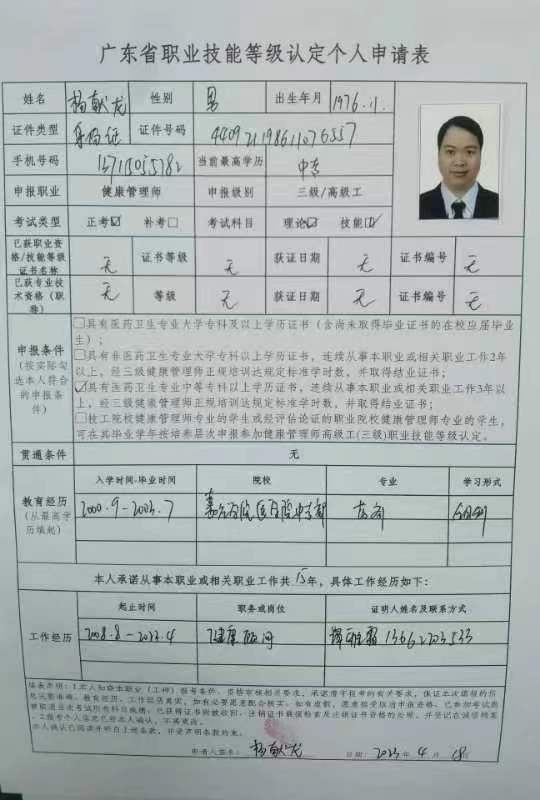 广东省职业技能等级认定个人申请表
姓名 杨献龙 性别 男 出生年月 1976.11.
证件类型 身份证 证件号码
手机号码 当前最高学历 中专
申报职业 健康管理师 申报级别 三级/高级工
考试类型 正考☑ 补考□ 考试科目 理论☑ 技能☑
已获职业资格/技能等级证书名称 无 证书等级 无 获证日期 无 证书编号 无
已获专业技术资格（职称） 无 等级 无 获证日期 无 证书编号 无
申报条件（按实际勾选本人符合的申报条件）
□具有医药卫生专业大学专科及以上学历证书（含尚未取得毕业证书的在校应届毕业
生）；
□具有非医药卫生专业大学专科以上学历证书，连续从事本职业或相关职业工作2年
以上，经三级健康管理师正规培训达规定标准学时数，并取得结业证书；
☑具有医药卫生专业中等专科以上学历证书，连续从事本职业或相关职业工作3年以
上，经三级健康管理师正规培训达规定标准学时数，并取得结业证书；
□技工院校健康管理师专业的学生或经评估论证的职业院校健康管理师专业的学生，
可在其毕业学年按培养层次申报参加健康管理师高级工(三级)职业技能等级认定。
贯通条件 无
教育经历（从最高学历填起）
入学时间-毕业时间 院校 专业 学习形式
2000.9-2003.7 嘉应学院医学院中专部 全日制
本人承诺从事本职业或相关职业工作共15年，具体工作经历如下：
工作经历
起止时间 职务或岗位 证明人姓名及联系方式
2008.8-2023.4 健康顾问
申请人签名： 杨献龙 日期： 2023年4月18日